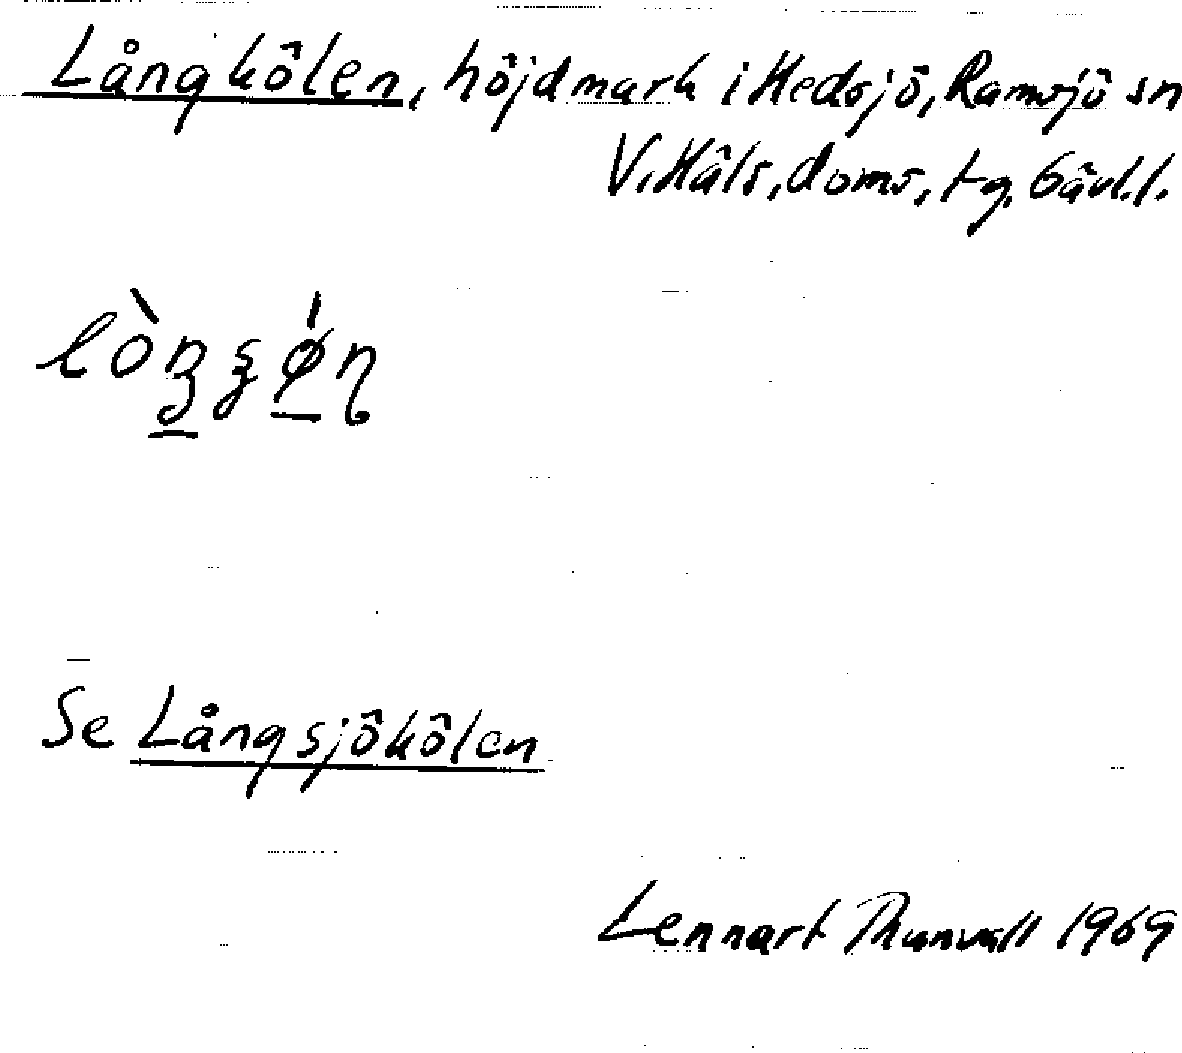 Långkölen, höjdmark i Hedsjö, Ramsjö sn
V. Häls. doms. tg. Gävl.l.
Se Långsjökölen
Lennart Thunvall 1969